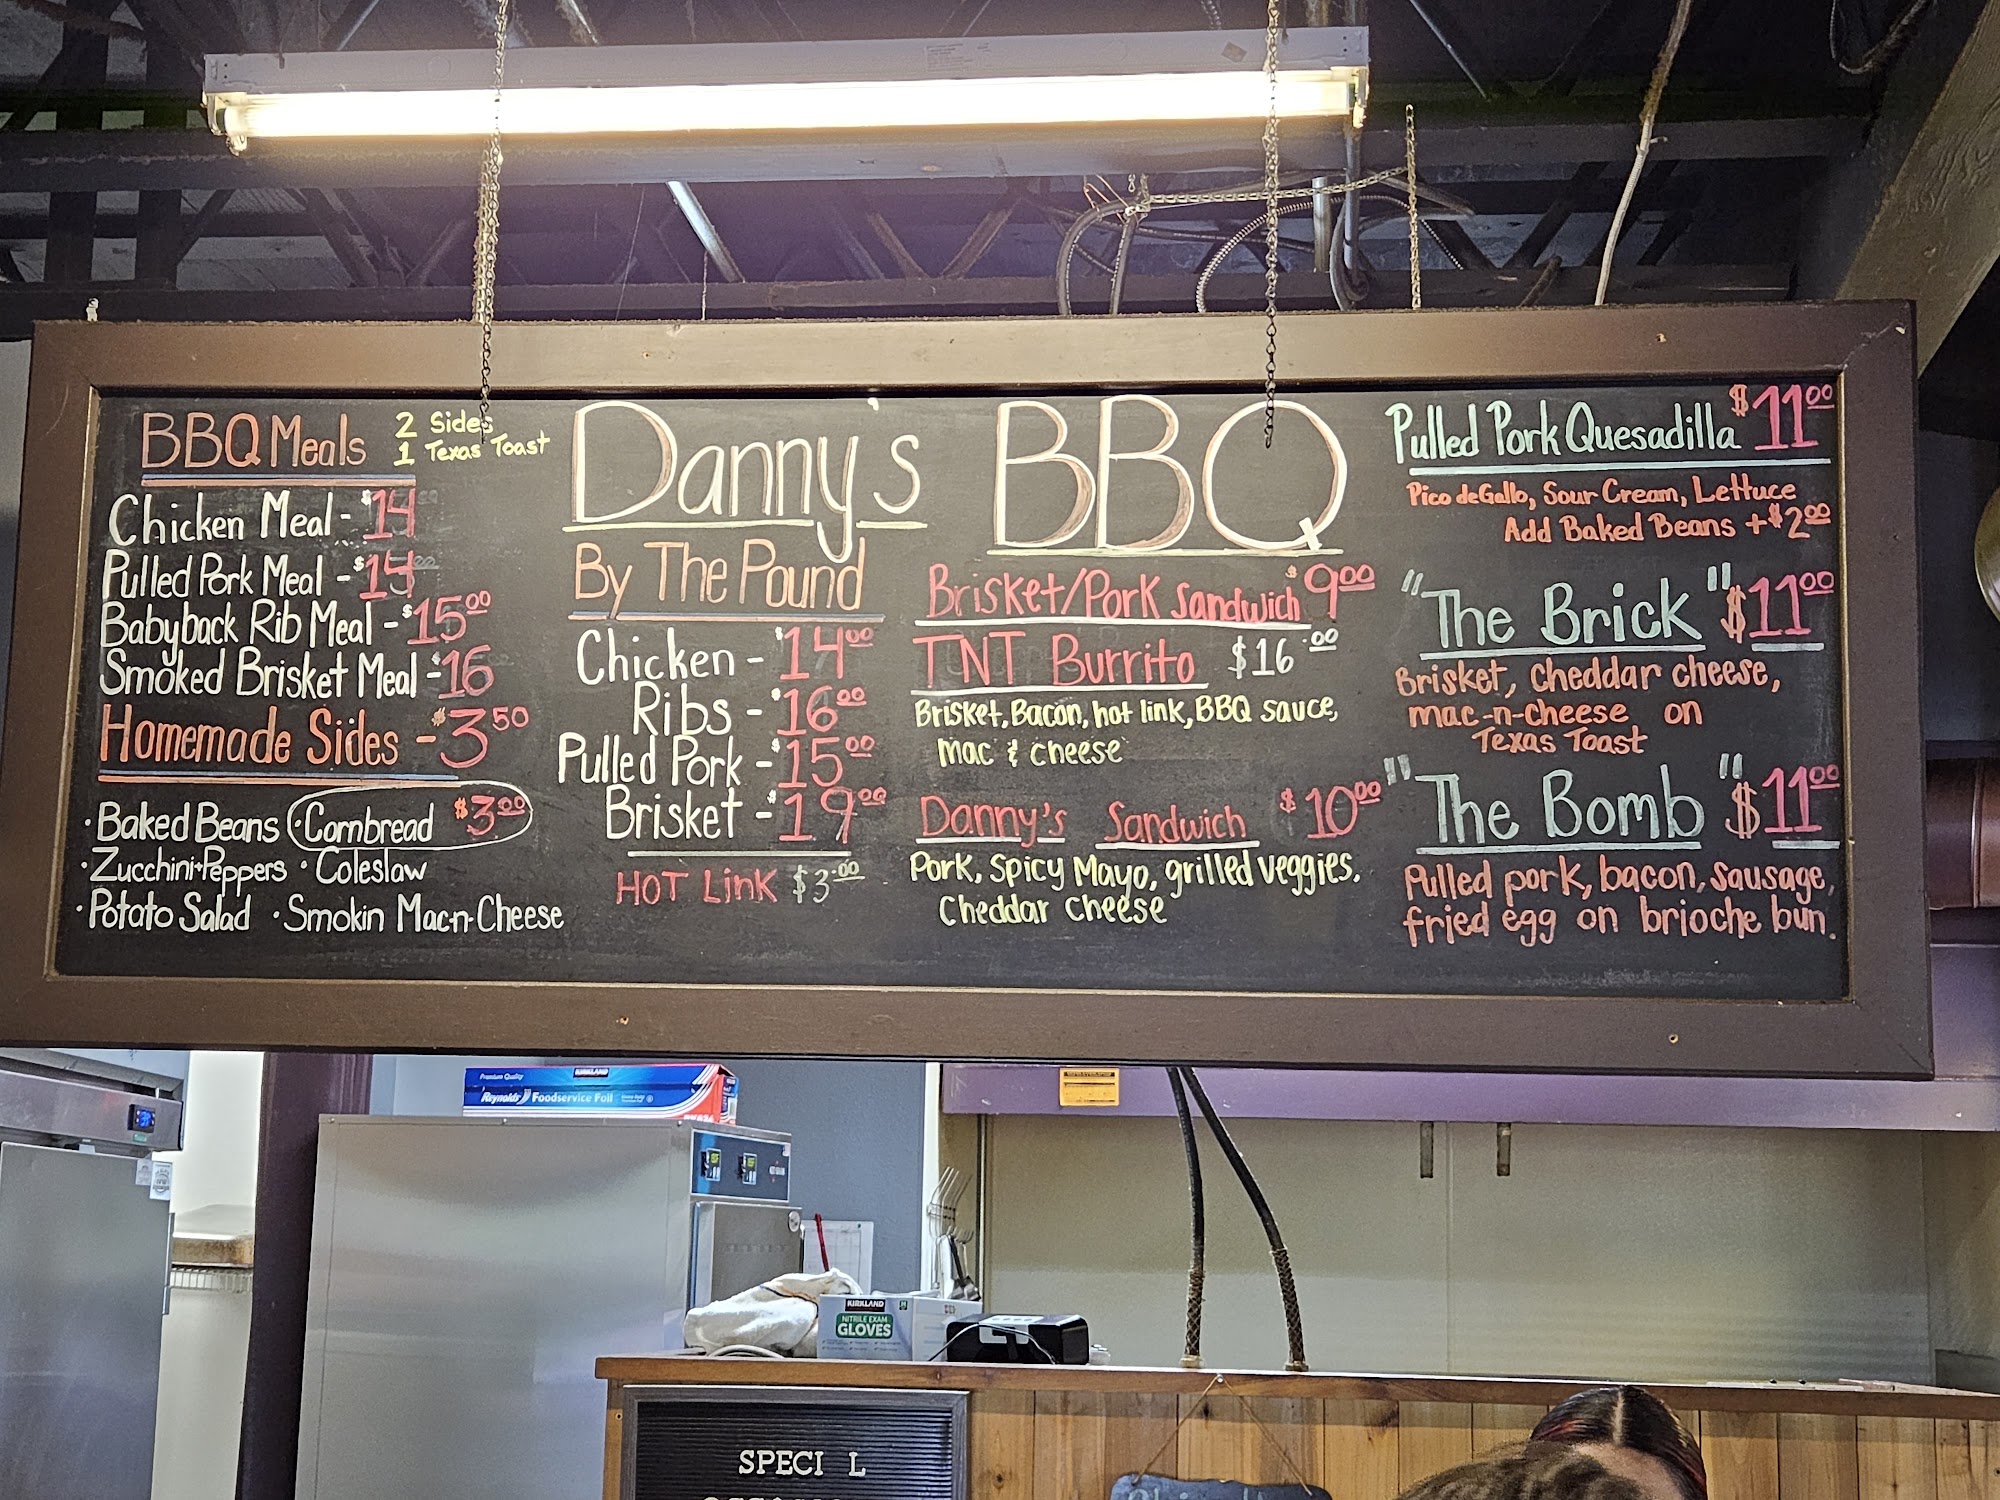 BBQ Meals
2 Sides
1 Texas Toast
Chicken Meal - $14
Pulled Pork Meal - $14
Babyback Rib Meal - $15.00
Smoked Brisket Meal - $16
Homemade Sides - $3.50
• Baked Beans • Cornbread $3.00
• Zucchini+Peppers • Coleslaw
• Potato Salad • Smokin Mac-n-Cheese
Danny's BBQ
By The Pound
Chicken - $14.00
Ribs - $16.00
Pulled Pork - $15.00
Brisket - $19.00
HOT LINK $3.00
Brisket/Pork Sandwich $9.00
TNT Burrito $16.00
Brisket, Bacon, hot link, BBQ sauce,
mac & cheese
Danny's Sandwich $10.00
Pork, Spicy Mayo, grilled veggies,
Cheddar cheese
Pulled Pork Quesadilla $11.00
Pico de Gallo, Sour Cream, Lettuce
Add Baked Beans +$2.00
"The Brick" $11.00
Brisket, Cheddar cheese,
mac-n-cheese on
Texas Toast
"The Bomb" $11.00
Pulled pork, bacon, sausage,
fried egg on brioche bun.
Premium Quality KIRKLAND
Reynolds Foodservice Foil
KIRKLAND
NITRILE EXAM
GLOVES
SPECI L